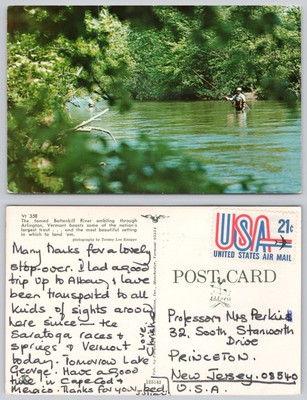 Vt 338
The famed Battenkill River ambling through
Arlington, Vermont boasts some of the nation's
largest trout . . . and the most beautiful setting
in which to land 'em.
photography by Tommy Lee Knapp
Many thanks for a lovely
stop-over. I had a good
trip up to Albany & have
been transported to all
kinds of sights around
here since — the
Saratoga races &
Springs & Vermont
today. Tomorrow Lake
George. Have a good
time in Cape Cod &
Mexico. Thanks for your bed.
Love,
Christine
105142
USA 21c
UNITED STATES AIR MAIL
POST CARD
Professor Mrs Perkins
32, South Stanworth
Drive
PRINCETON.
New Jersey. 08540
U.S.A.